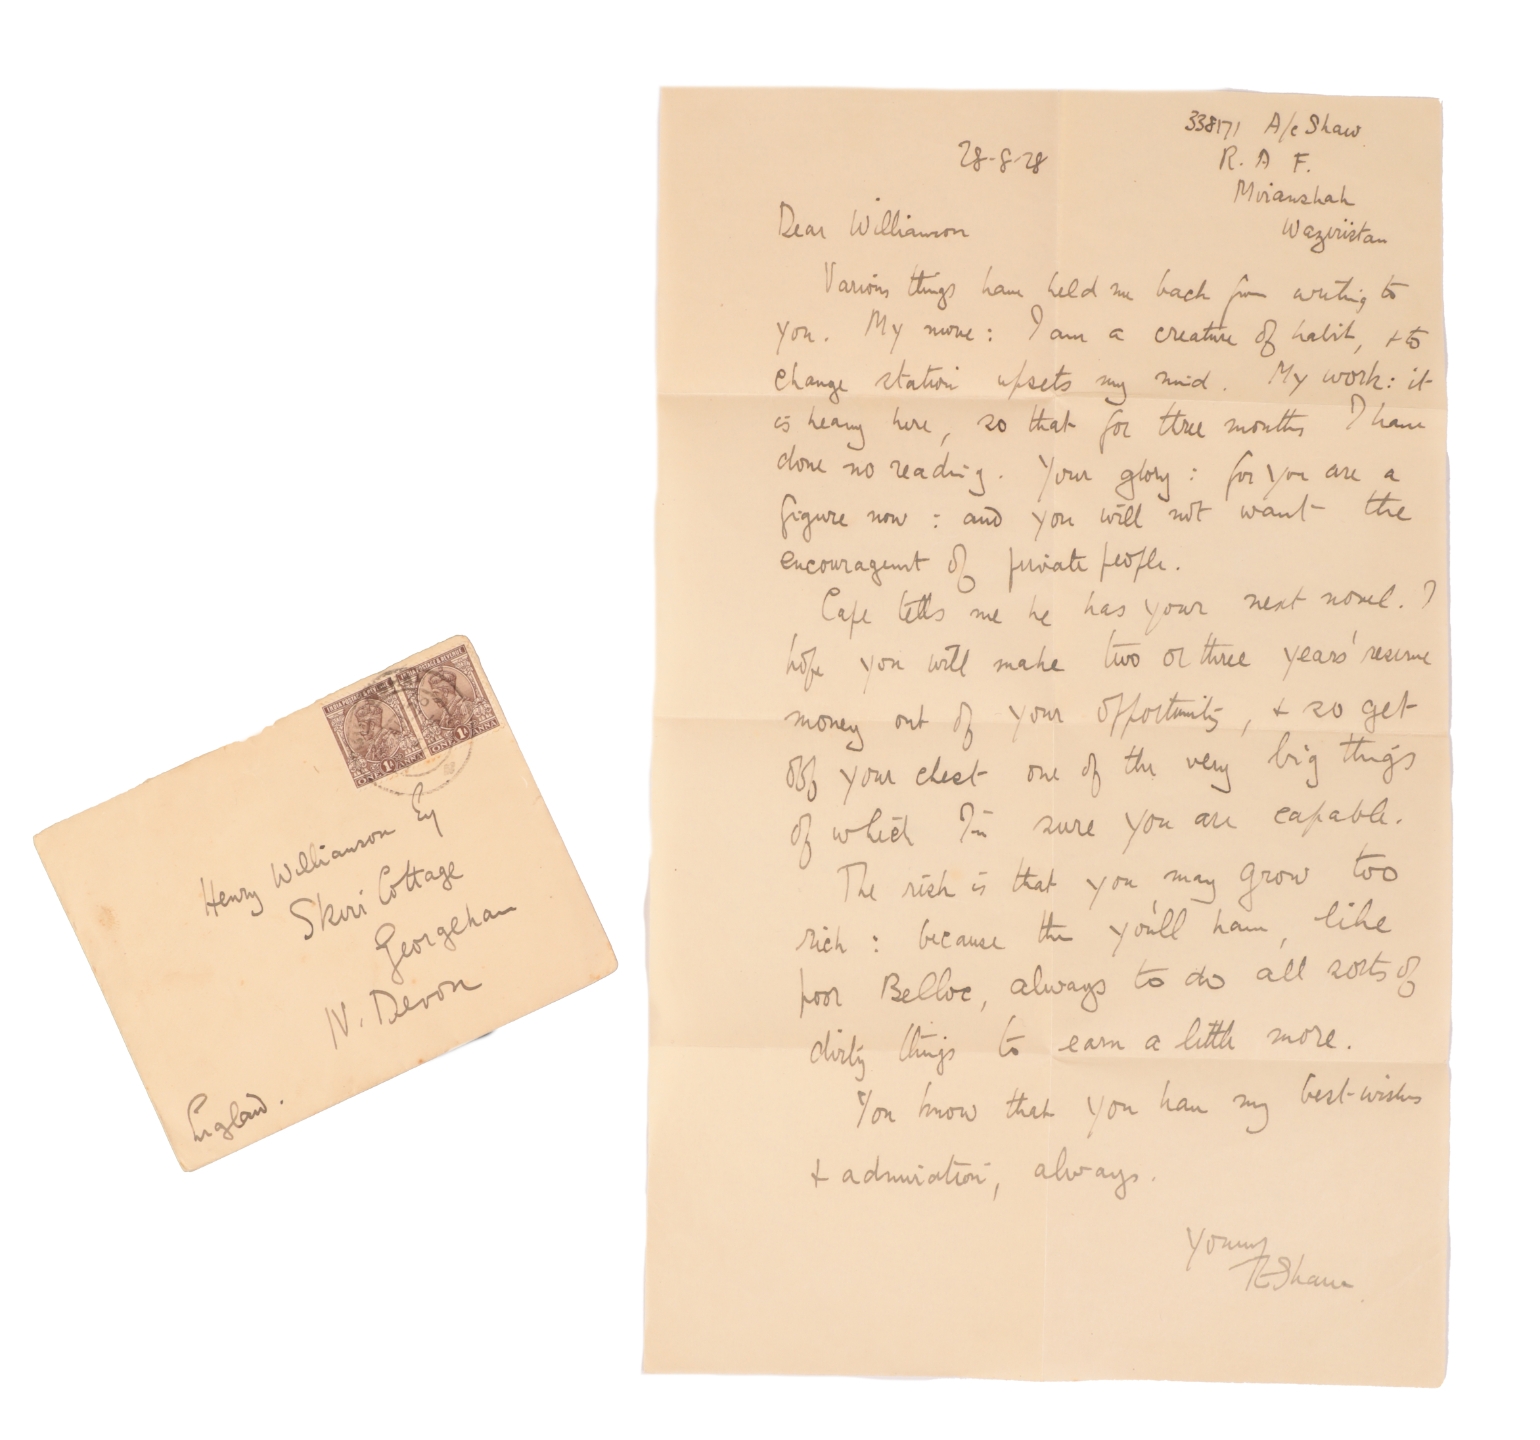 INDIA POSTAGE & REVENUE
ONE 1A ANNA
ONE 1A ANNA
Henry Williamson Esq
Skirr Cottage
Georgeham
N. Devon
England.
338171 A/c Shaw
28-8-28
R. A F.
Miranshah
Waziristan
Dear Williamson
Various things have held me back from writing to
you. My move: I am a creature of habit, & to
change station upsets my mind. My work: it
is heavy here, so that for three months I have
done no reading. Your glory: for you are a
figure now: and you will not want the
encouragement of private people.
Cape tells me he has your next novel. I
hope you will make two or three years' reserve
money out of your opportunity, & so get
off your chest one of the very big things
of which I'm sure you are capable.
The risk is that you may grow too
rich: because then you'll have, like
poor Belloc, always to do all sorts of
dirty things to earn a little more.
You know that you have my best-wishes
& admiration, always.
Yours
T E Shaw